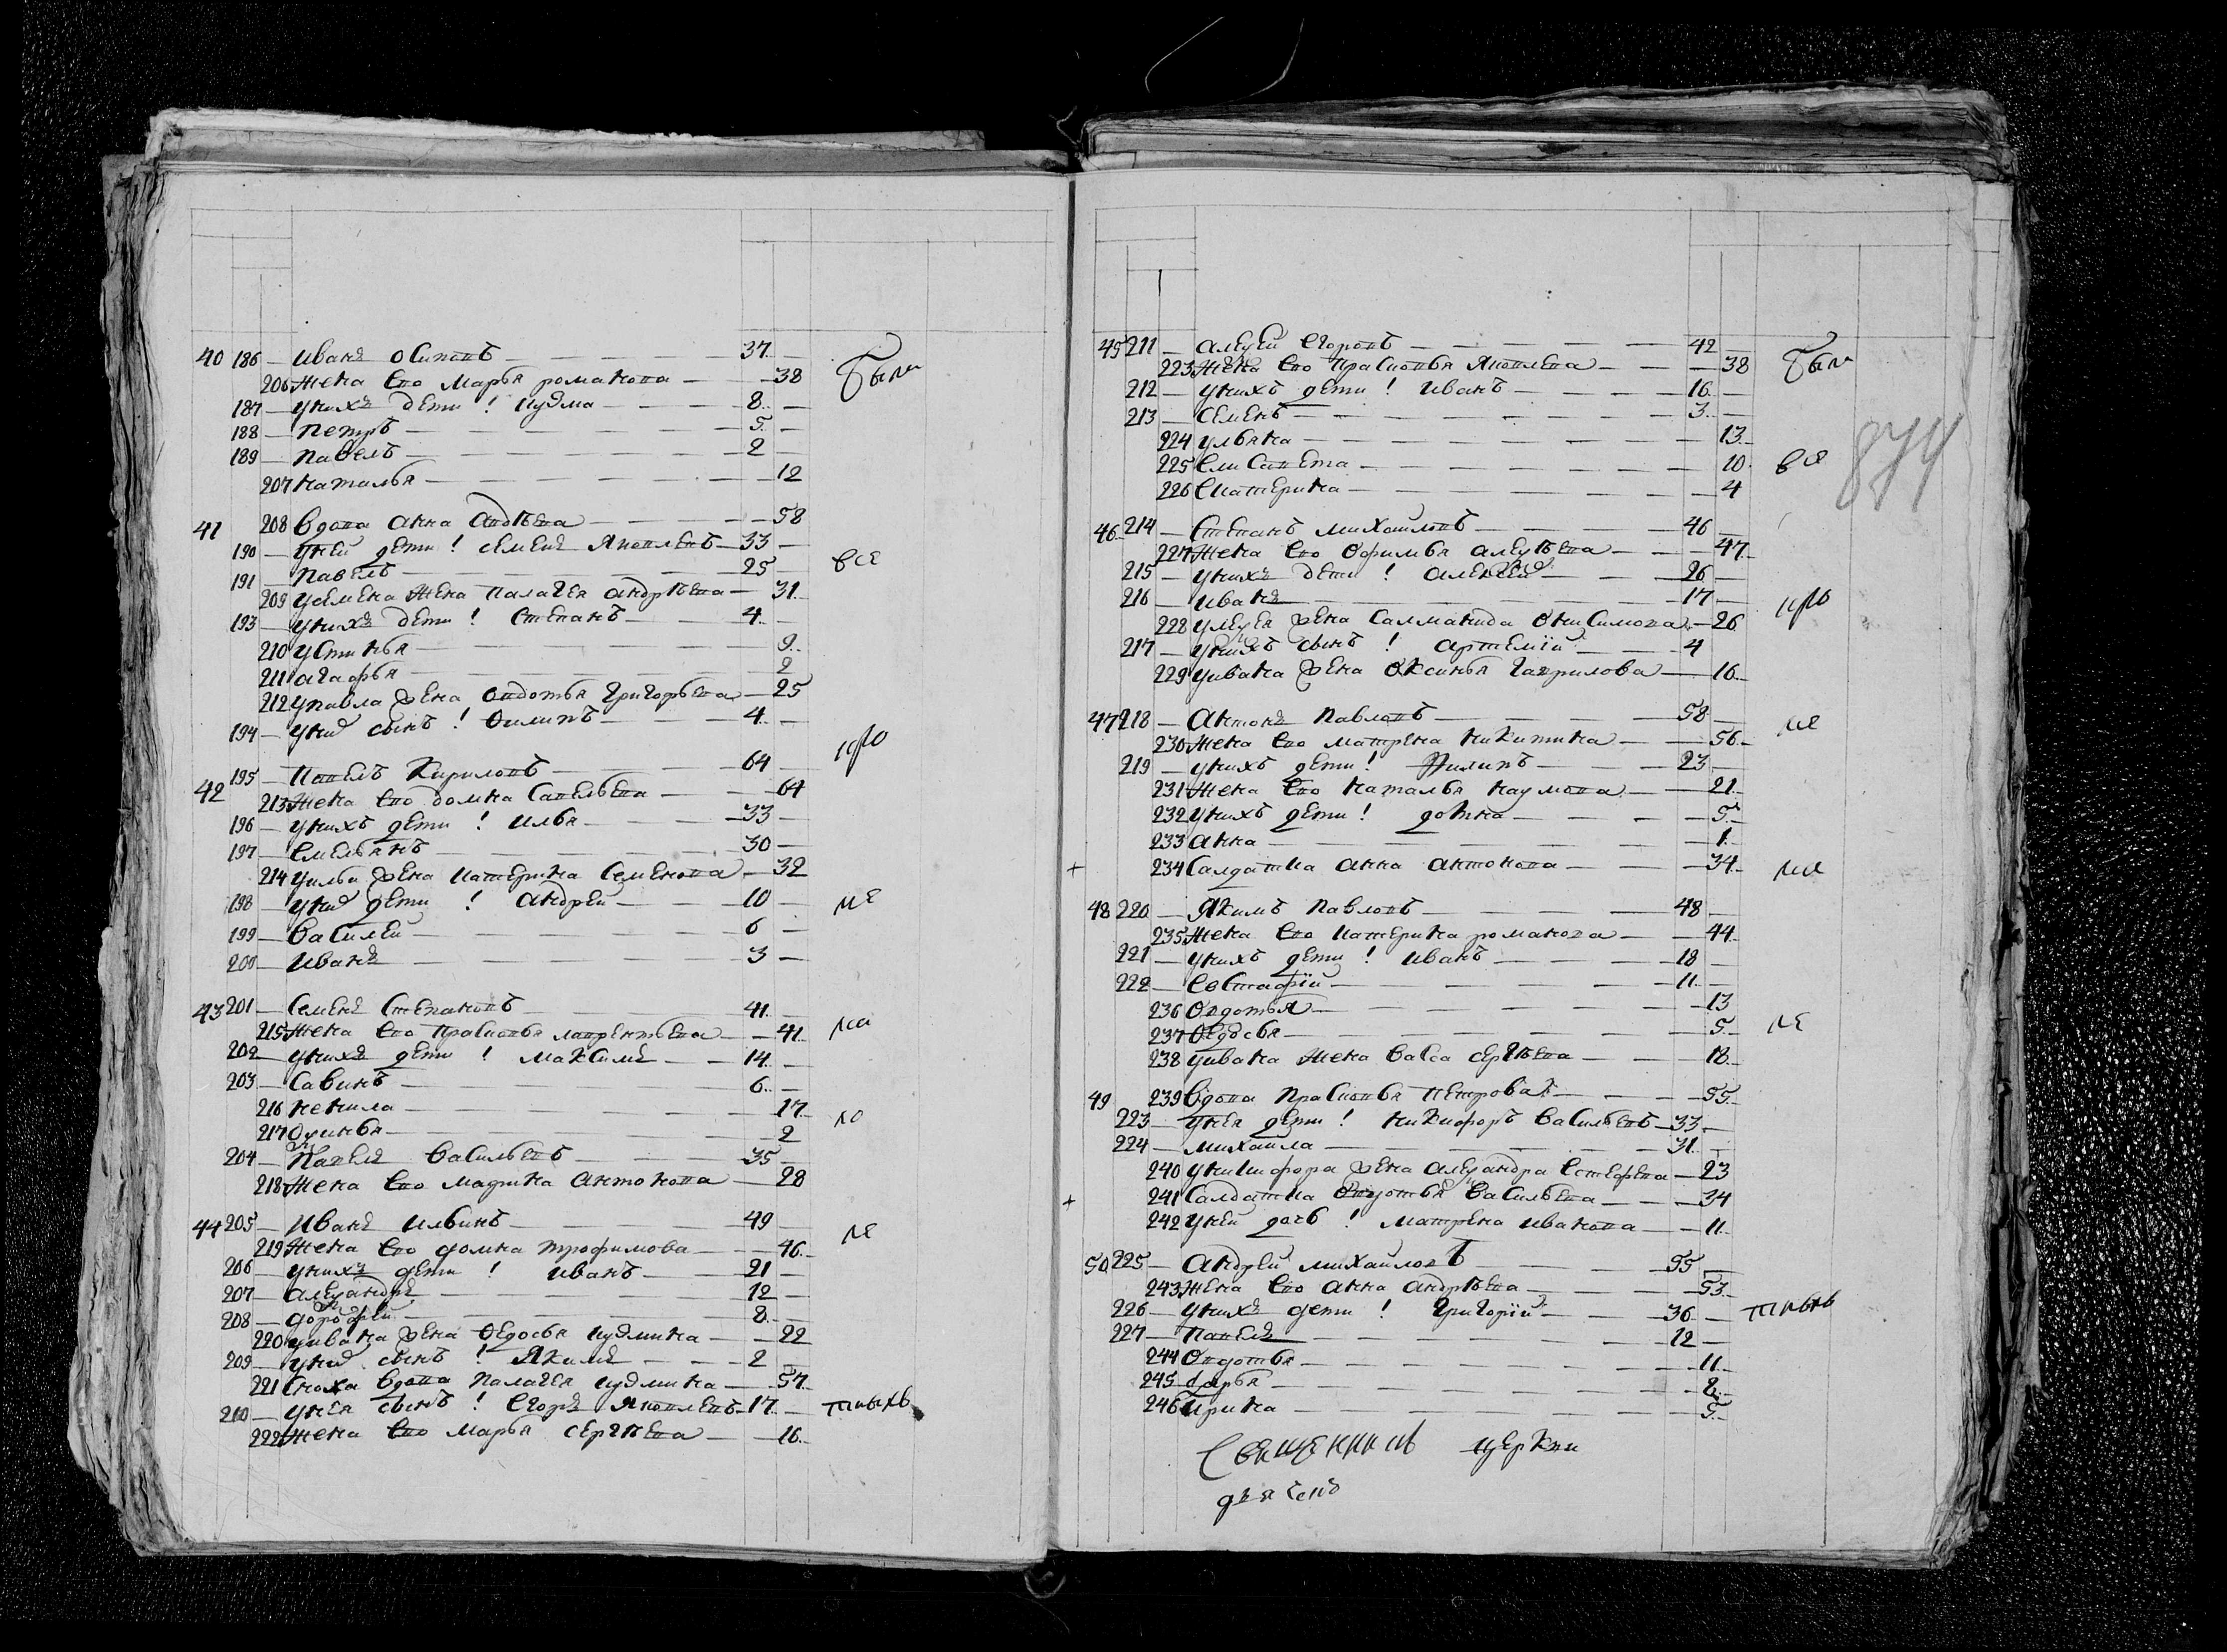 40 186 Иванъ Осиповъ 37
206 Жена Ево Марья романова 38 Были
187 у нихъ дети ! кузма 8
188 петръ 5
189 павелъ 2
207 наталья 12
41 208 вдова анна андреева 58
190 у ней дети ! семенъ Яковлевъ 33
191 павелъ 25 все
209 у семена жена палагея андреева 31
193 у нихъ дети ! Степанъ 4
210 устинья 9
211 агафья 2
212 у павла жена овдотья григорьева 25
194 у них сынъ ! филипъ 4
195 Павелъ Кириловъ 64
42 213 жена Ево домна Савельева 64
196 у нихъ дети ! илья 33
197 Емельянъ 30
214 у ильи жена катерина Семенова 32
198 у них дети ! андрей 10 не
199 василей 6
200 иванъ 3
43 201 Семенъ Степановъ 41
215 жена Ево прасковья лаврентьева 41
202 у нихъ дети ! максимъ 14
203 Савинъ 6
216 ненила 17
217 Оксинья 2
204 Павелъ васильевъ 35
218 жена Ево марина антонова 28
44 205 Иванъ ильинъ 49
219 жена Ево домна трофимова 46
206 у нихъ дети ! иванъ 21
207 александръ 12
208 дорофей 8
220 у ивана жена Федосья кузмина 22
209 у них сынъ ! Якимъ 2
221 сноха вдова палагея кузмина 57
210 у нея сынъ ! Егоръ Яковлевъ 17
222 жена Ево марья сергеева 16
45 211 алексей Егоровъ 42
223 жена Ево прасковья Яковлева 38 Были
212 у нихъ дети ! иванъ 16
213 семенъ 3
224 ульяна 13
225 Елисавета 10 874
226 Екатерина 4
46 214 Степанъ михайловъ 46
227 жена Ево офимья алексеева 47
215 у нихъ дети ! алексей 26
216 иванъ 17
228 у алексея жена Саламанида онисимова 26
217 у нихъ сынъ ! артемій 4
229 у ивана жена Оксинья гаврилова 16
47 218 антонъ павловъ 58
230 жена Ево матрена никитина 56
219 у нихъ дети ! Филипъ 23
231 жена Ево наталья наумова 21
232 у нихъ дети ! домна 5
233 анна 1
+ 234 Салдатка анна антонова 34
48 220 Якимъ павловъ 48
235 жена Ево катерина романова 44
221 у нихъ дети ! иванъ 18
222 Евстафій 11
236 Овдотья 13
237 Федосья 5 не
238 у ивана жена васа сергеева 18
49 239 вдова прасковья петрова 55
223 у нея дети ! никифоръ васильевъ 33
224 михаила 31
240 у никифора жена александра Естефева 23
+ 241 Салдатка Овдотья васильева 34
242 у ней дочь ! матрена иванова 11
50 225 андрей михайловъ 55
243 жена Ево анна андреева 53
226 у нихъ дети ! григорій 36
227 павелъ 12
244 Овдотья 11
245 дарья 8
246 ирина 5
Священникъ церкви
дьячекъ